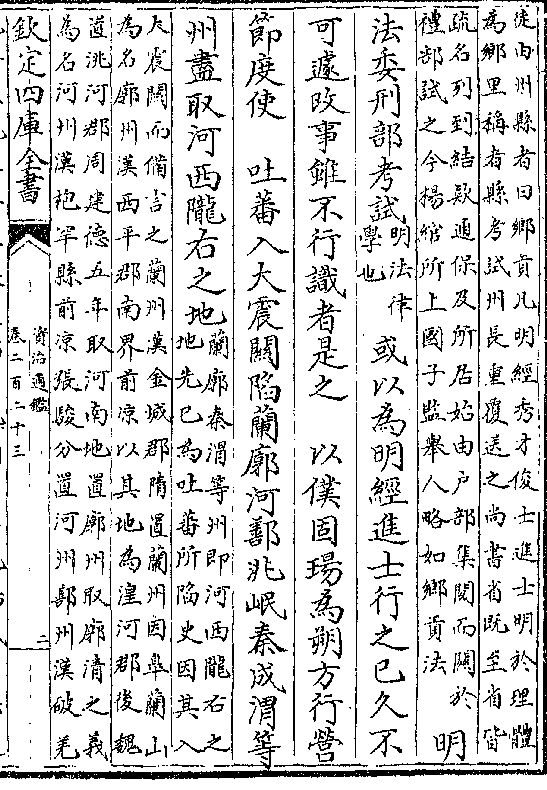 徒而州縣者曰鄉貢凡明經秀才俊士進士明於理體
為鄉里稱者縣考試州長重覆送之尚書省既至省皆
疏名列到結款通保及所居始由户部集閲而關於
禮部試之今楊綰所上國子監舉人略如鄉貢法
明
法委刑部考試
明法律
學也
或以為明經進士行之已久不
可遽改事雖不行識者是之
以僕固瑒為朔方行營
節度使
吐蕃入大震關陷蘭廓河鄯洮岷秦成渭等
州盡取河西隴右之地
蘭廓秦渭等州即河西隴右之
地先已為吐蕃所陷史因其入
大震關而備言之蘭州漢金城郡隋置蘭州因臯蘭山
為名廓州漢西平郡南界前涼以其地為湟河郡後魏
置洮河郡周建德五年取河南地置廓州取廓清之義
為名河州漢枹罕縣前涼張駿分置河州鄯州漢破羌
欽定四庫全書
資治通鑑
卷二百二十三
二